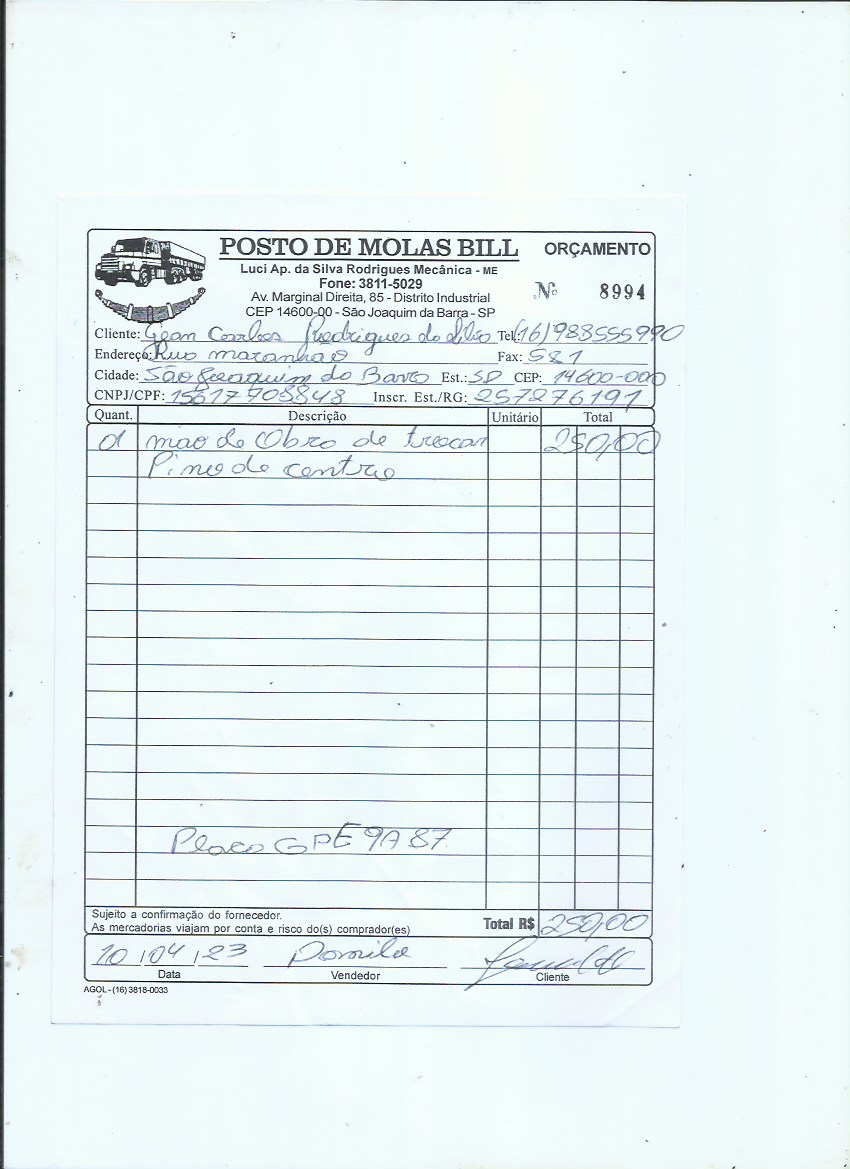 POSTO DE MOLAS BILL
ORÇAMENTO
Luci Ap. da Silva Rodrigues Mecânica - ME
Fone: 3811-5029
Av. Marginal Direita, 85 - Distrito Industrial
CEP 14600-00 - São Joaquim da Barra - SP
Nº 8994
Cliente: Gean Carlos Rodrigues da Silva Tel: (16) 988555990
Endereço: Rua maranhão Fax: 581
Cidade: São Joaquim da Barra Est.: SP CEP: 14600-000
CNPJ/CPF: 15617708848 Inscr. Est./RG: 257276191
Quant. Descrição Unitário Total
01 mao de Obra de trocar 250,00
Pino de centro
Placa GPE 9A87
Sujeito a confirmação do fornecedor.
As mercadorias viajam por conta e risco do(s) comprador(es)
Total R$ 250,00
10/04/23
Data Vendedor Cliente
AGOL - (16) 3818-0033